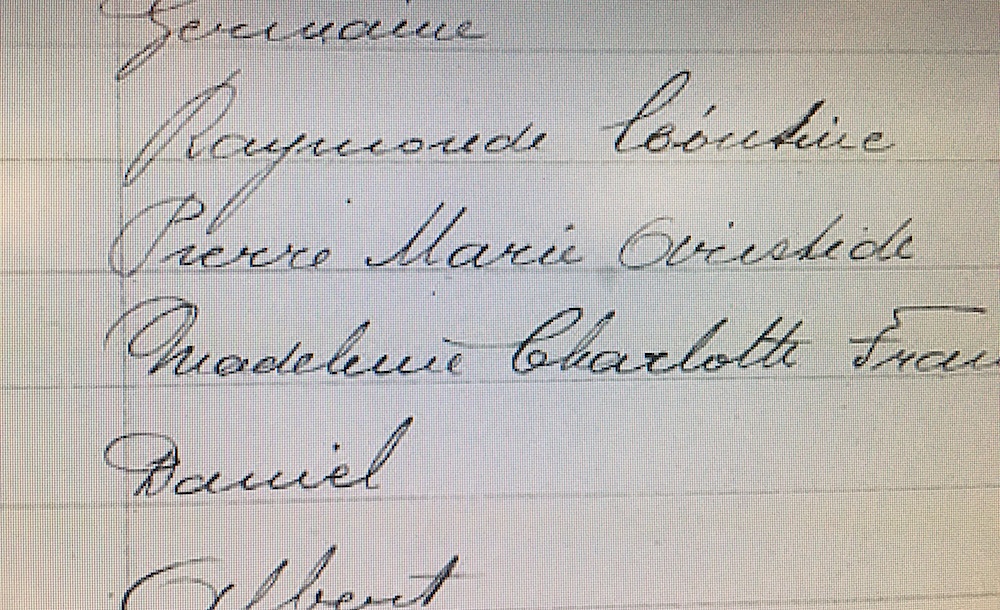 Germaine
Raymonde Léontine
Pierre Marie Aristide
Madeleine Charlotte Fran
Daniel
Albert